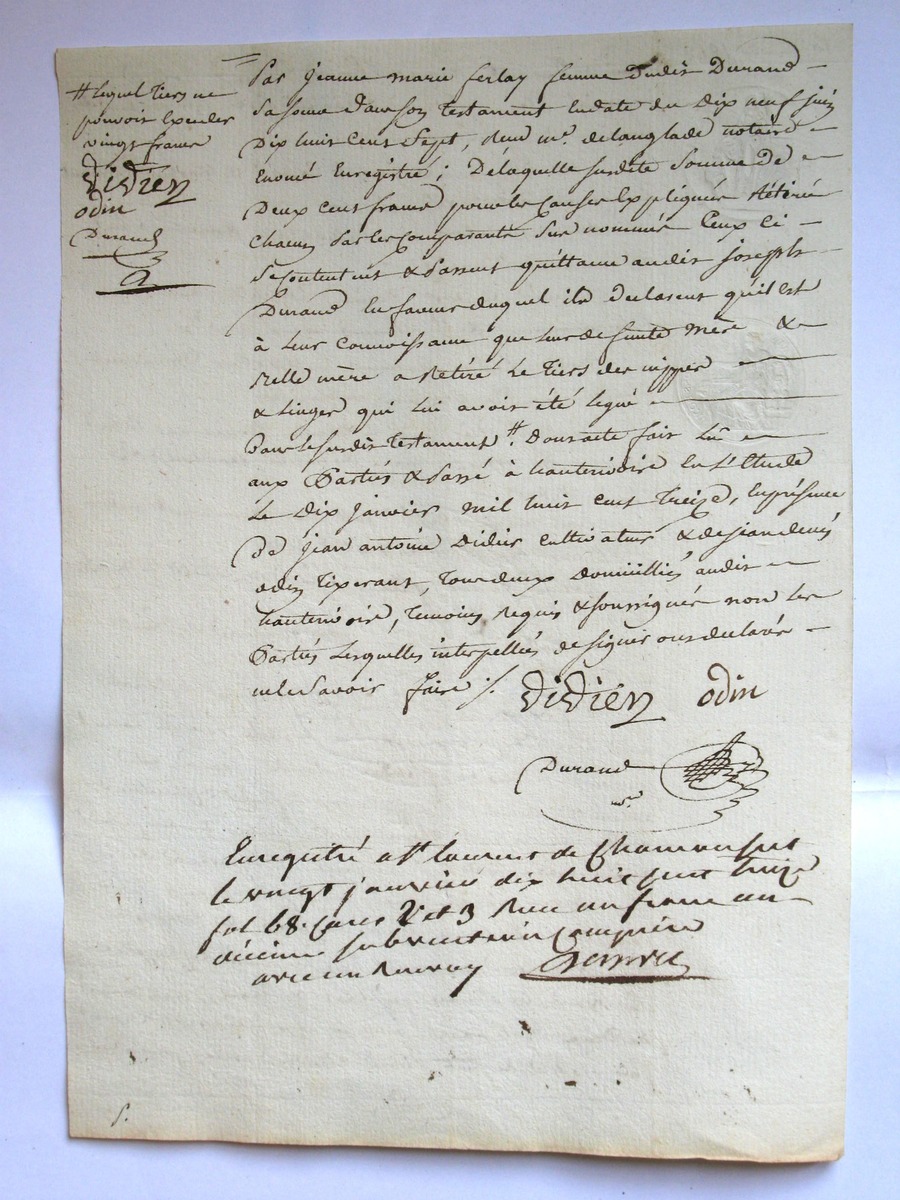 # lequel tiers ne
pouvoit exceder
vingt francs
Didier
odin
Durand
Par jeanne marie ferlay femme dudit Durand
dans son testament en date du dix neuf juin
dix huit cent sept, Reçu me. delanglade notaire
Enregistré; De laquelle susdite somme de
Deux cent francs pour les causes Expliquées Rétirée
chacun par les comparants sus nommés Ceux ci
se contentent & Passent quittance audit joseph
Durand En faveur duquel ils declarent qu'il est
à leur connoissance que leur defunte mère &
Belle mère a Retiré le tiers des nippes
& linges qui lui avoit été legué
Par le susdit testament #. Dont acte fait lu
aux Parties & Passé à hauterivoire En l'Etude
Le Dix janvier mil huit cent treize, En présence
De jean antoine Didier cultivateur & de jean denis
odin tixerant, tous deux domiciliés audit
hauterivoire, temoins Requis & soussignés non les
Parties lesquelles interpellées de signer ont declaré
ne le savoir faire ./.
Didier odin
Durand
nre
Enregistré a St laurent de Chamousset
le vingt janvier dix huit cent treize
fol 68. cases 2 et 3 Recu un franc un
décime subvention Comprise
avec un Renvoy